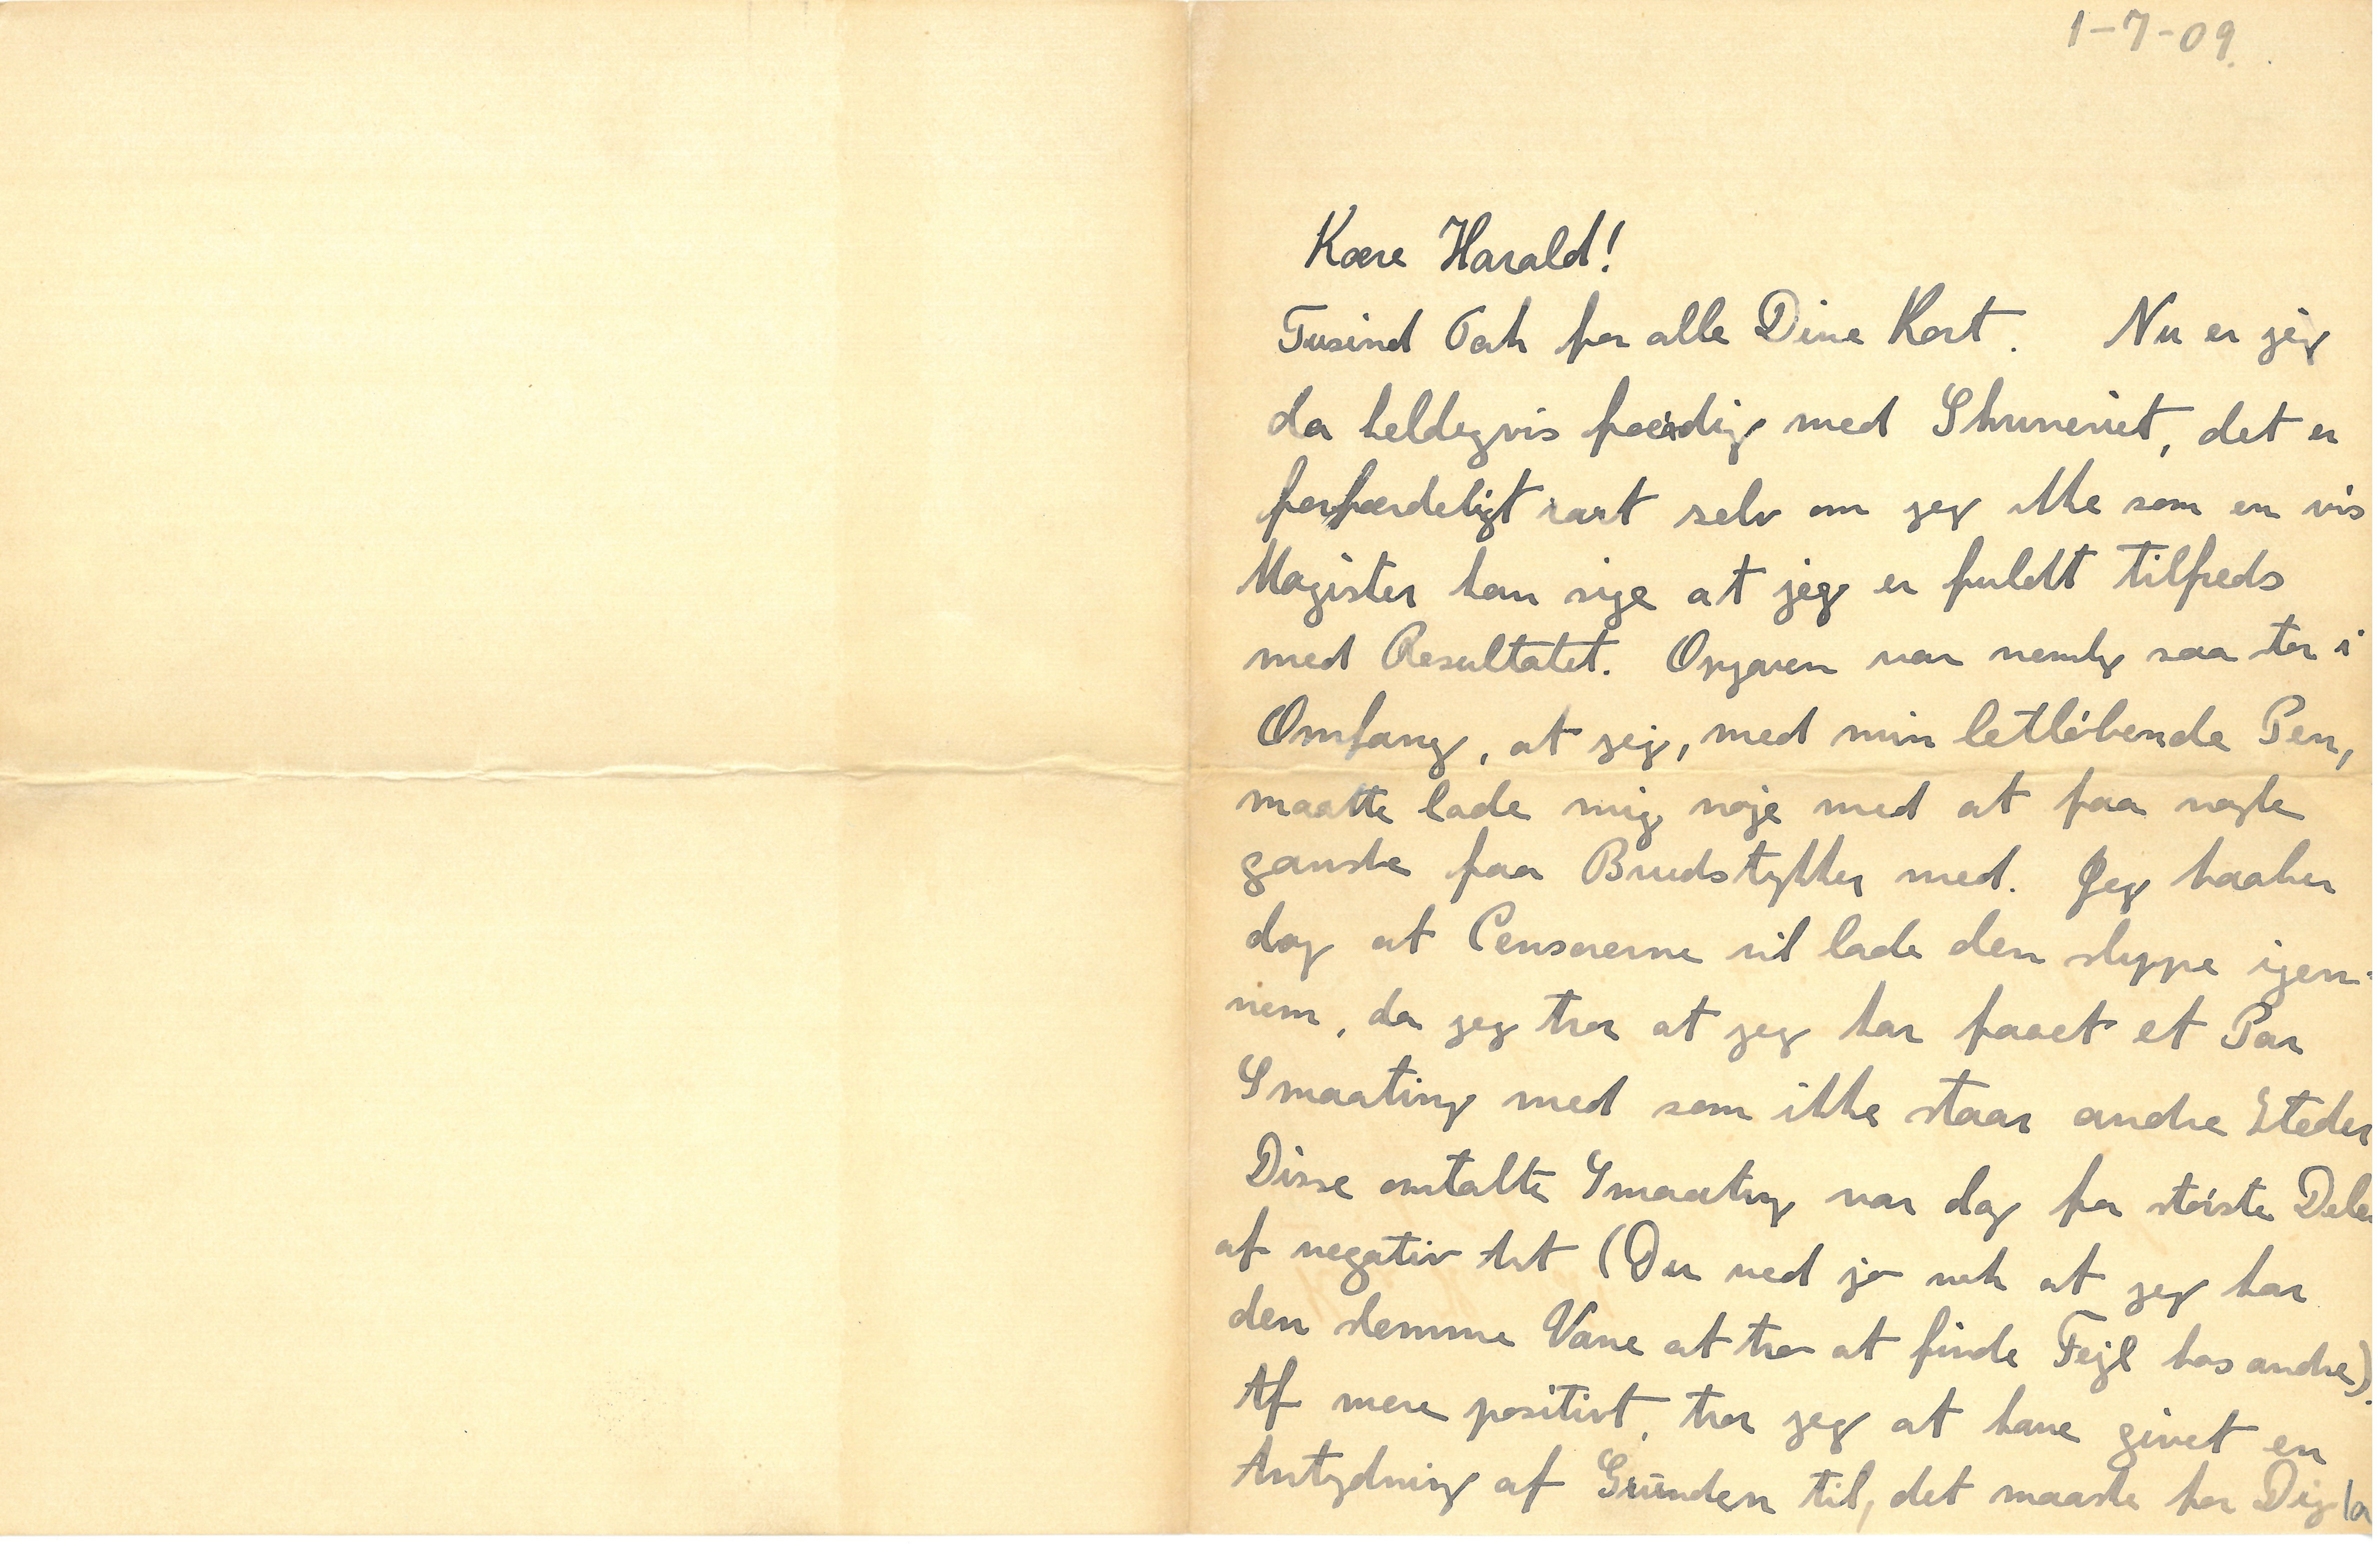 1-7-09.
Kære Harald!
Tusind Tak for alle Dine Kort. Nu er jeg
da heldigvis færdig med Skriveriet, det er
forfærdeligt rart selv om jeg ikke som en vis
Magister kan sige at jeg er fuldt tilfreds
med Resultatet. Opgaven var nemlig saa stor i
Omfang, at jeg, med min letløbende Pen,
maatte lade mig nøje med at faa nogle
ganske faa Brudstykker med. Jeg haaber
dog at Censorerne vil lade den slippe igen-
nem, da jeg tror at jeg har faaet et Par
Smaating med som ikke staar andre Steder
Disse omtalte Smaating var dog for største Delen
af negativ Art (Du ved jo nok at jeg har
den slemme Vane at tro at finde Fejl hos andre).
Af mere positivt, tror jeg at have givet en
Antydning af Grunden til, det maaske for Dig